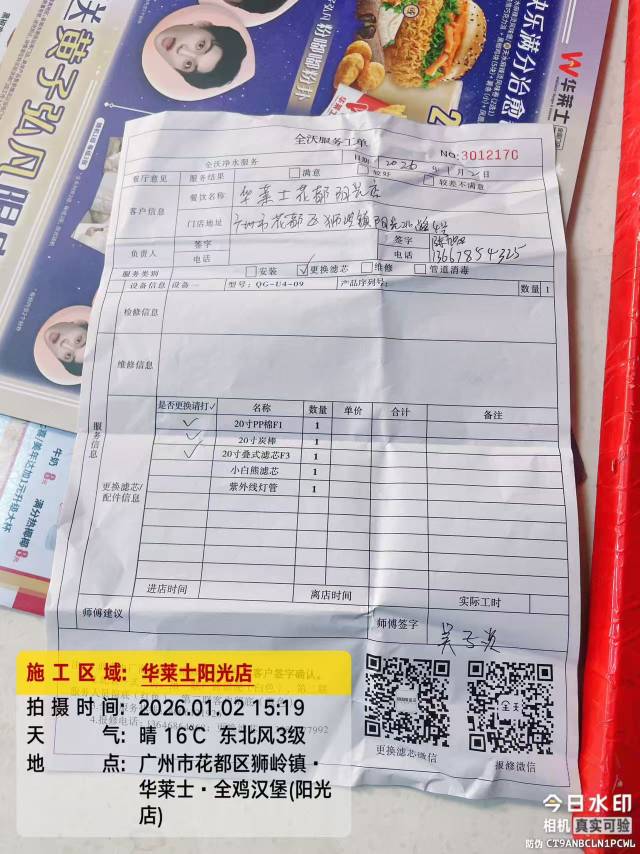 夫 黄子弘凡
粉嘟嘟粉扑
快乐满分治愈
华莱士
全沃服务工单
全沃净水服务
日期
2026年1月2日
NO:301217C
餐厅意见
服务结果
满意
较好
较差不满意
客户信息
餐饮名称
华莱士花都阳光店
门店地址
广州市花都区狮岭镇阳光
负责人
签字
电话
签字
电话
13667854325
服务类别
安装
更换滤芯
维修
管道消毒
设备信息
设备一
型号: QG-U4-09
产品序列号:
数量 1
检修信息
维修信息
服务信息
更换滤芯/配件信息
是否更换请打✓ 名称 数量 单价 合计 备注
✓ 20寸PP棉F1 1
✓ 20寸炭棒 1
✓ 20寸叠式滤芯F3 1
小白熊滤芯 1
紫外线灯管 1
进店时间
离店时间
实际工时
师傅建议
师傅签字
客户签字确认。
更换滤芯微信
报修微信
牛奶 8元
满分热椰椰 8元
施工区域: 华莱士阳光店
拍摄时间: 2026.01.02 15:19
天气: 晴 16℃ 东北风3级
地点: 广州市花都区狮岭镇·
华莱士·全鸡汉堡(阳光
店)
今日水印
相机 真实可验
防伪 CT9ANBCLN1PCWL